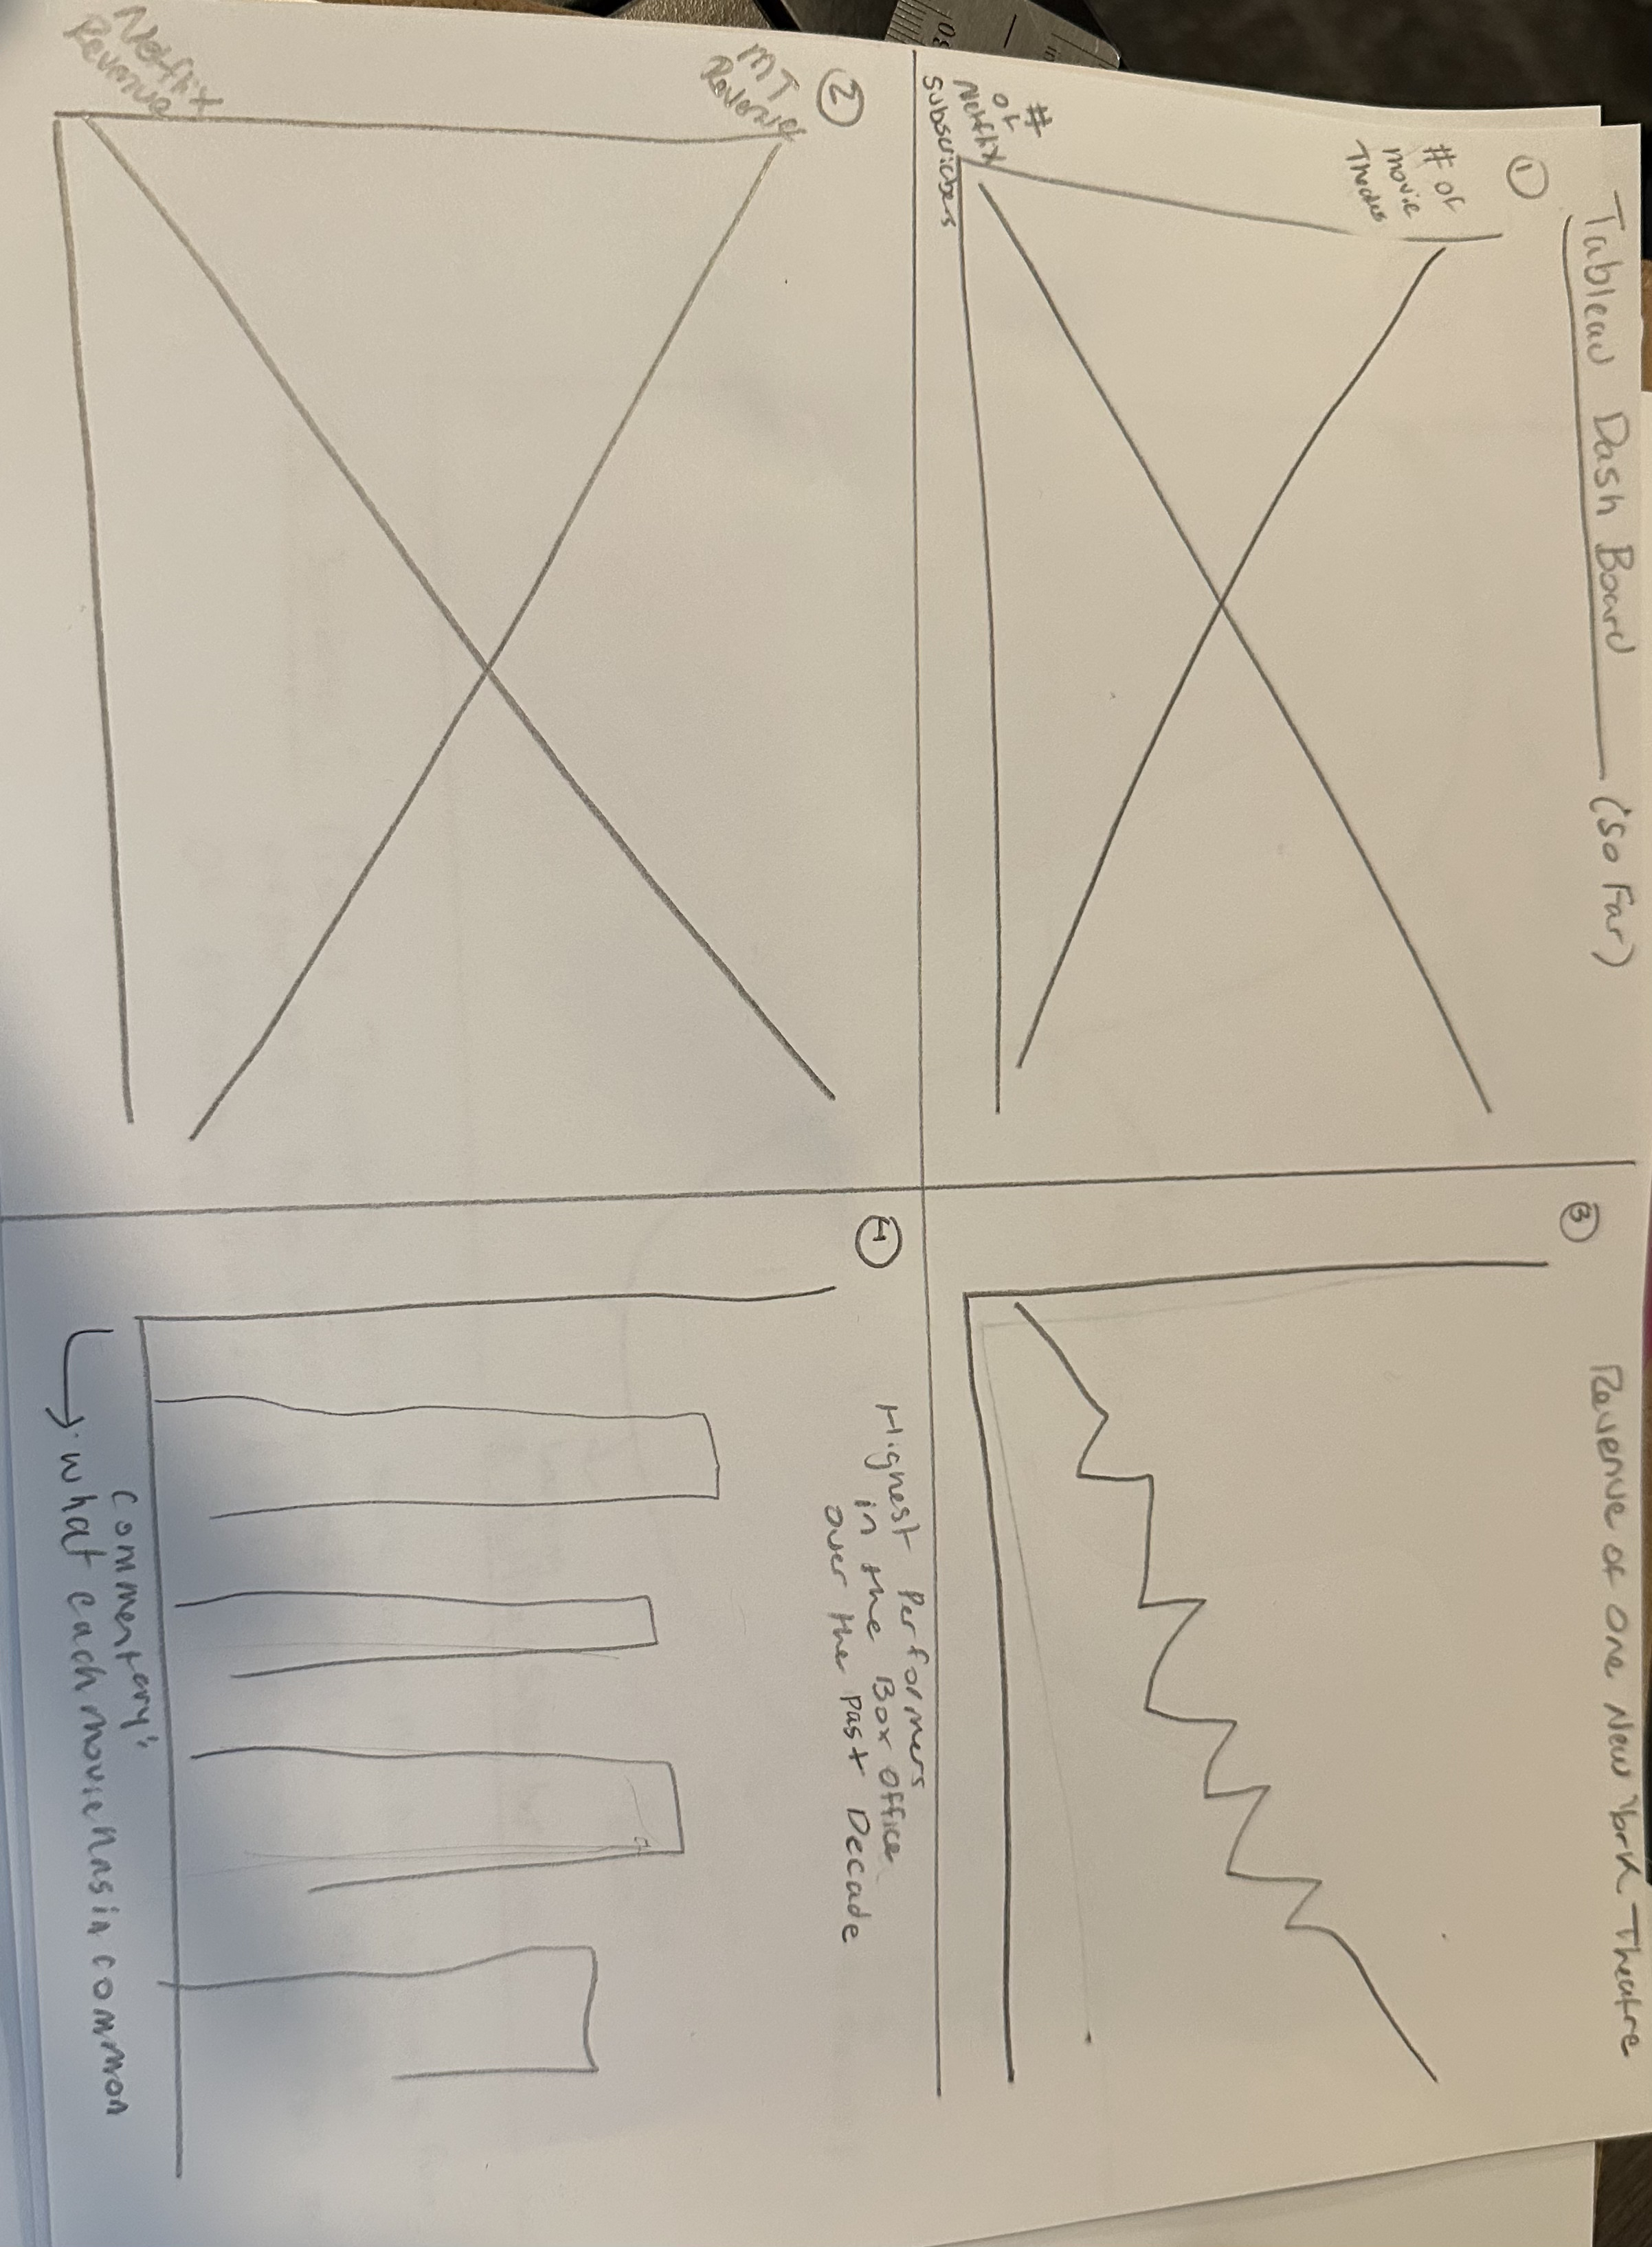 Tableau Dash Board (so Far)
①
# of
movie
Theatres
#
of
Netflix
subscribers
②
MT
Revenue
Netflix
Revenue
③
Revenue of One New York Theatre
④
Highest Performers
in the Box Office
over the past Decade
commentary:
what each movie has in common